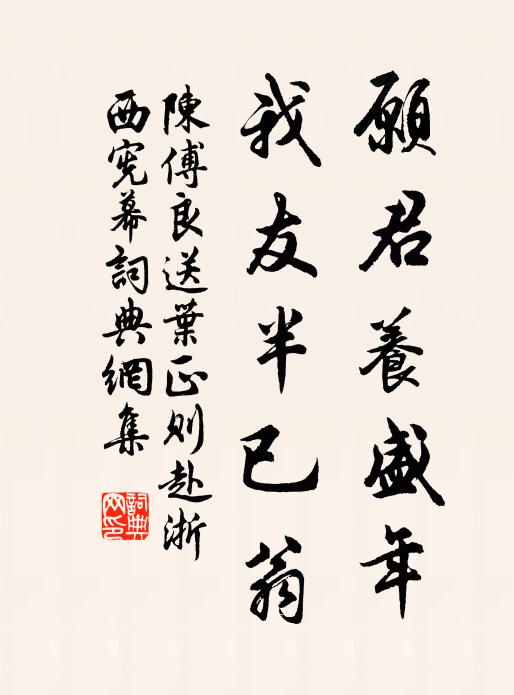 願君養盛年
我友半已翁
陳傅良送葉正則赴浙
西憲幕詞典網集
詞典
网印